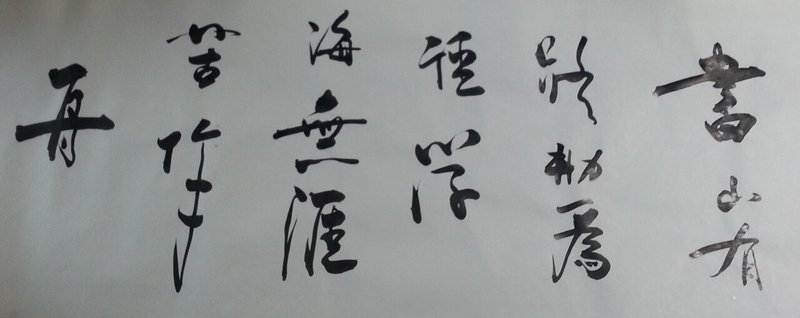 書山有
路勤為
徑學
海無涯
苦作
舟